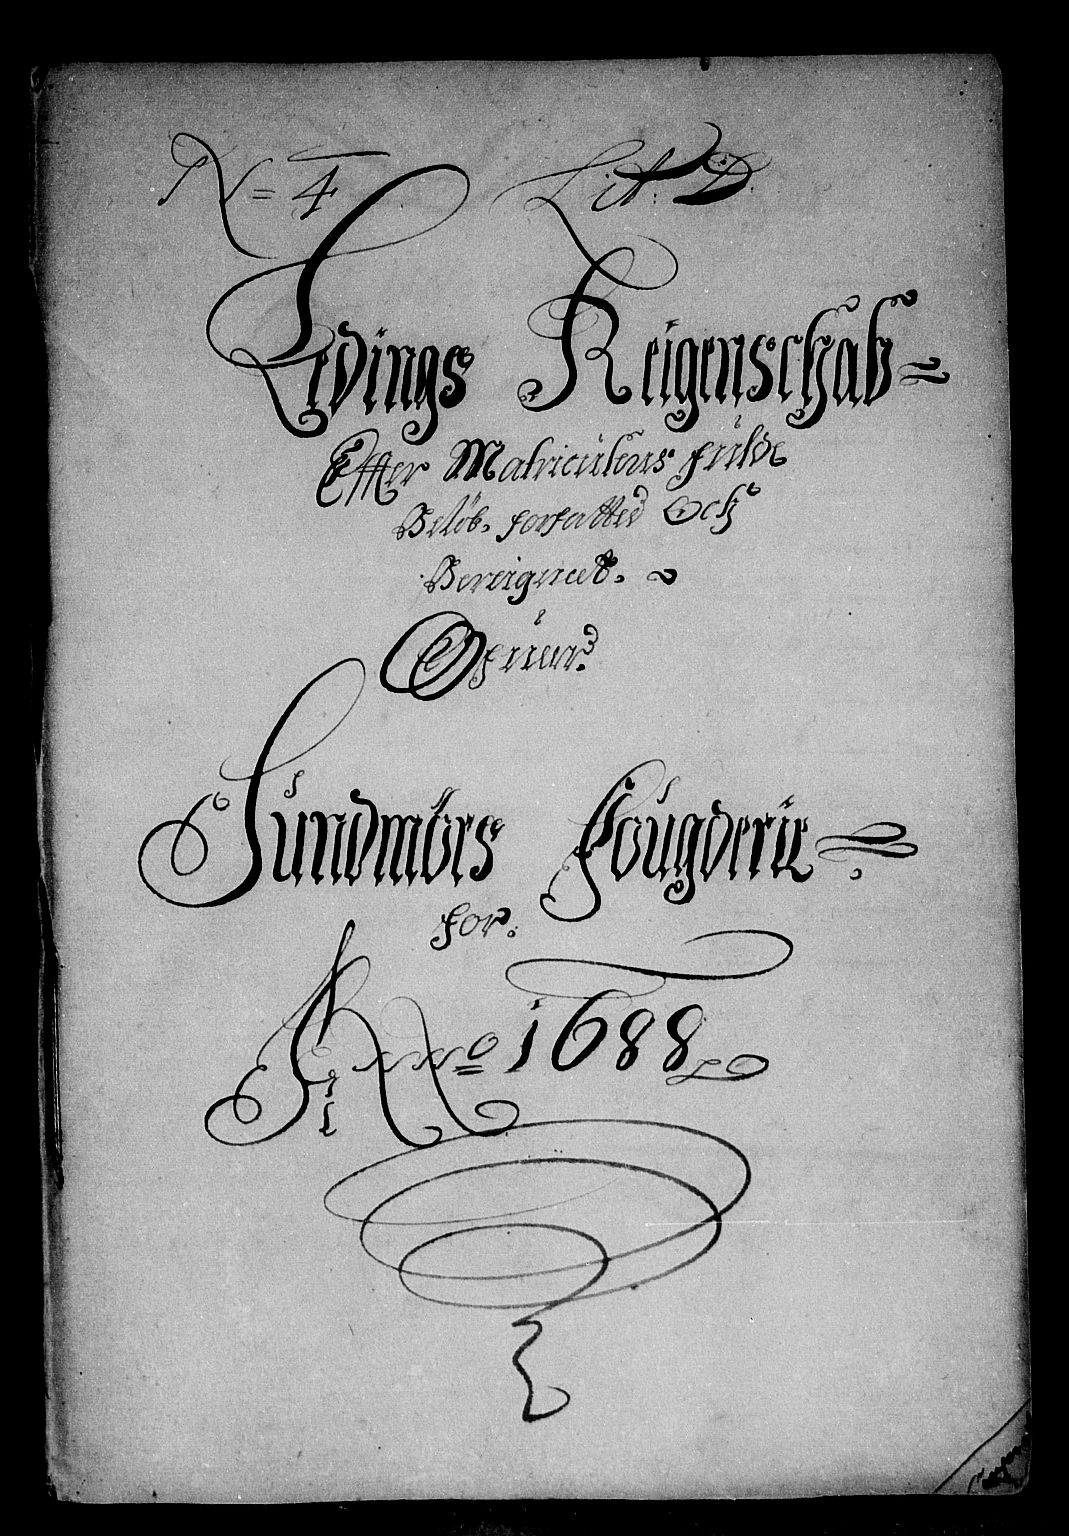 N= 4 Lit: D.
Ledings Reigenschab=
Effter Matriculens fulde
Beløb, forfatted Och
Bereignet.
Ofuer
Sundmørs Fougderie
for.
Anno 1688